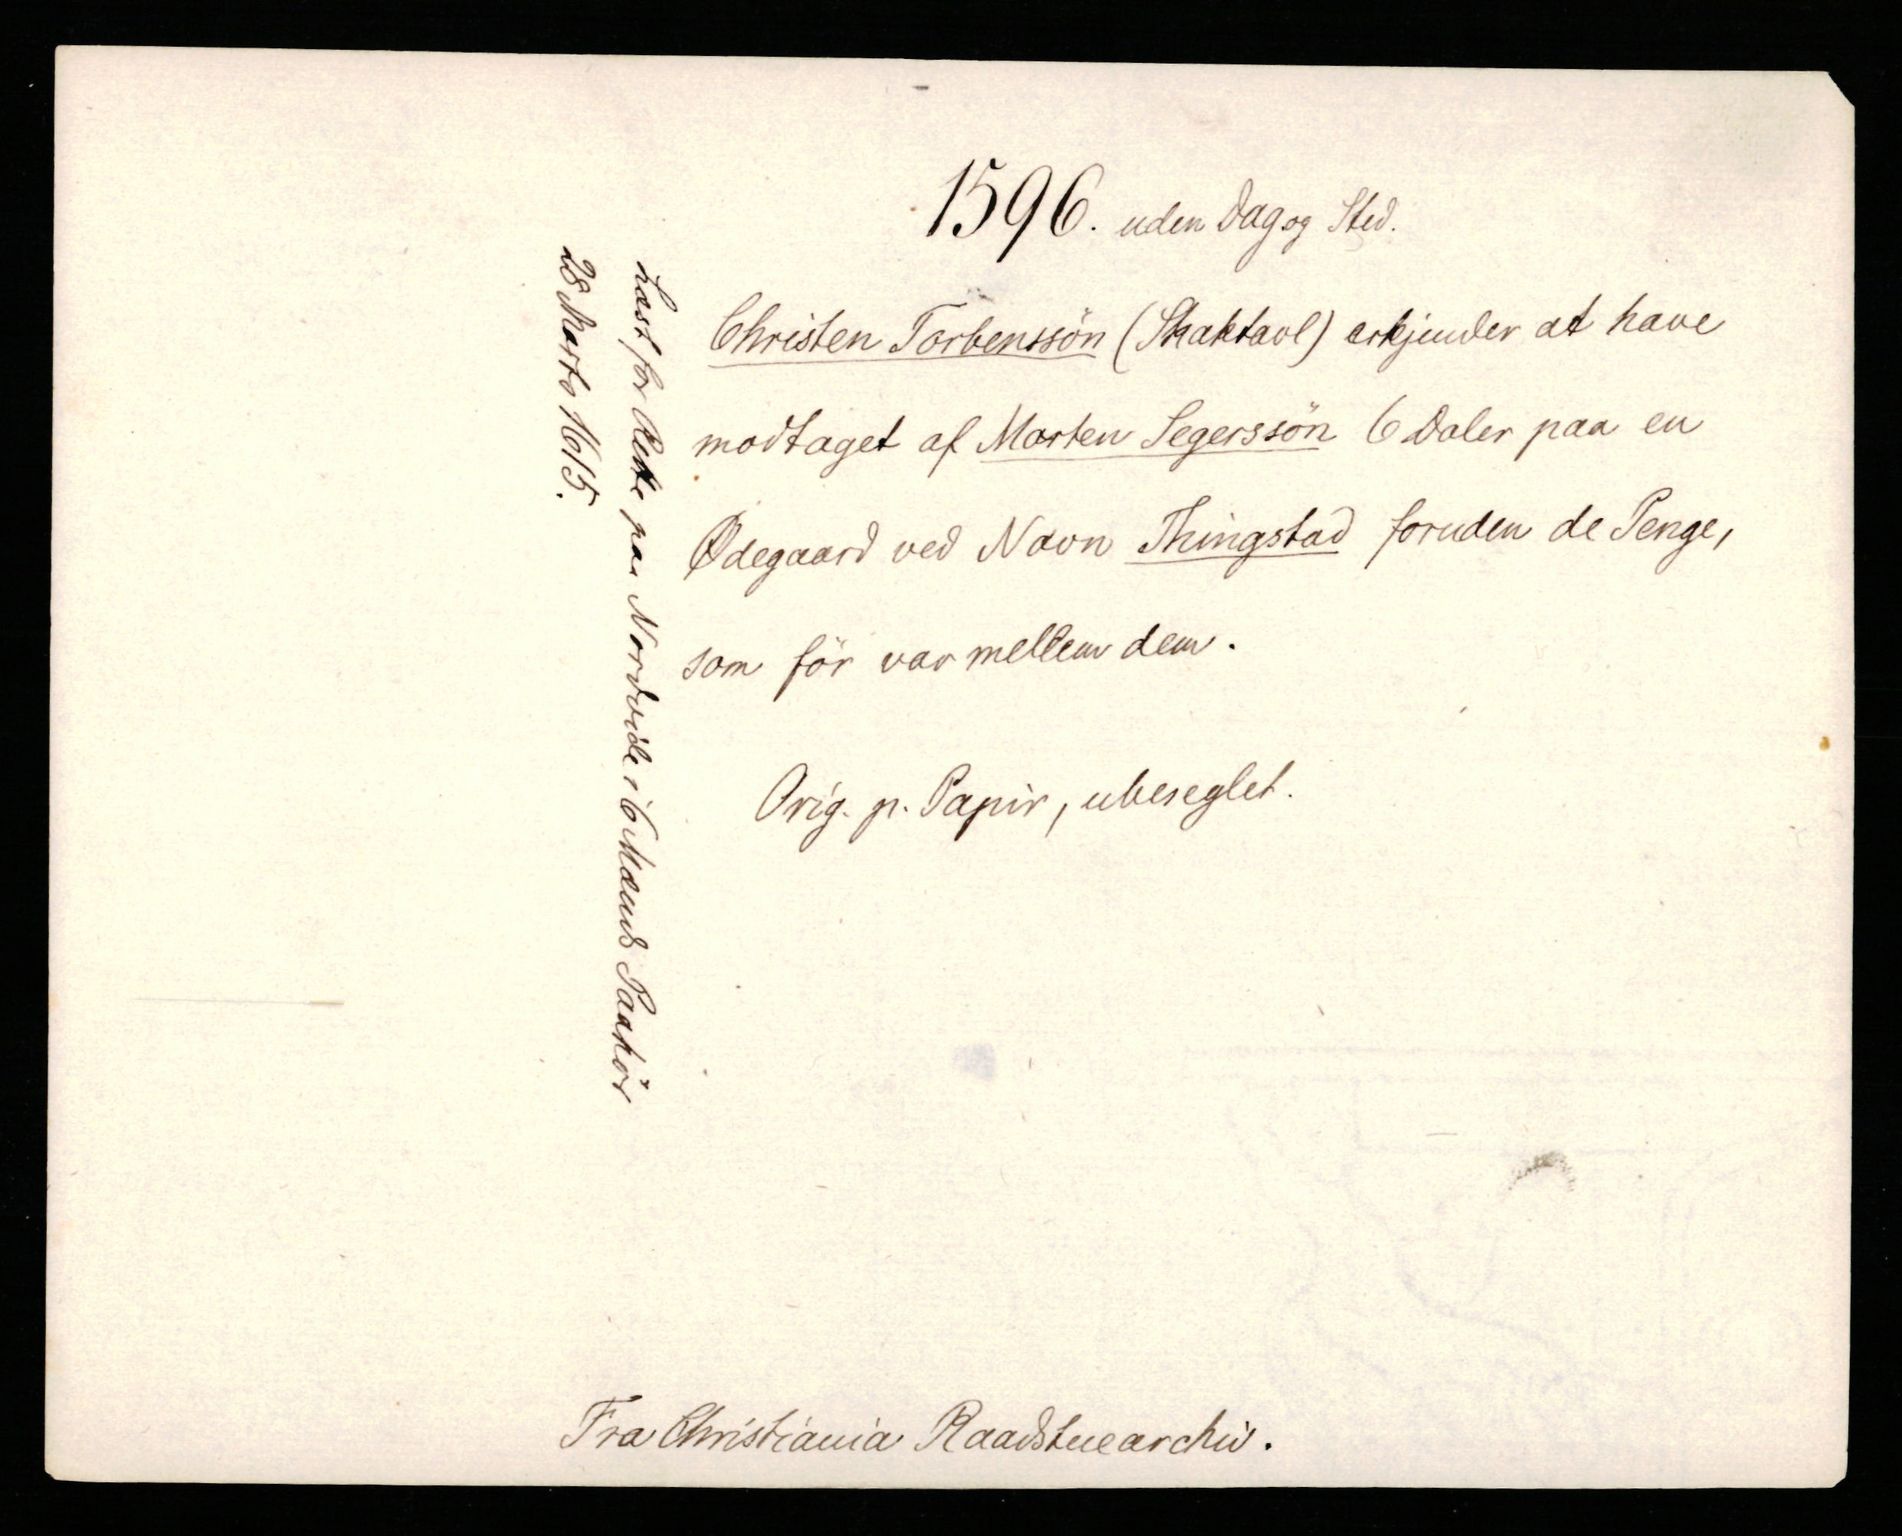 1596. uden Dag og Sted.
Christen Torbenssön (Skaktavl) erkjender at have
modtaget af Morten Segerssön 6 Daler paa en
Ödegaard ved Navn Thingstad foruden de Penge,
som för var mellem dem.
Orig. p. Papir, ubeseglet.
Læst for Rette paa Nordvide i 6 Mænds Paahör
28 Marts 1615.
Fra Christiania Raadstuearchiv.